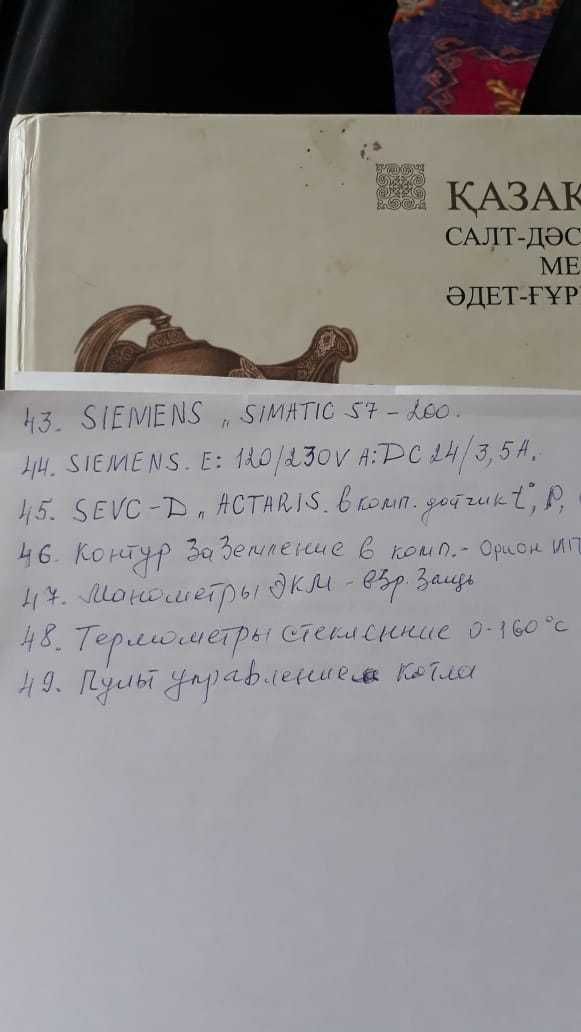 ҚАЗАҚ
САЛТ-ДӘС
МЕ
ӘДЕТ-ҒҰР
43. SIEMENS „ SIMATIC S7-200.
44. SIEMENS. E: 120/230V A:DC 24/3,5A.
45. SEVC-D „ ACTARIS. в комп. датчик t°, P,
46. Контур Заземление в комп.- Орион ИП
47. Манометры ЭКМ - взр. Защь
48. Термометры стеклянние 0-160°С
49. Пульт управление котла